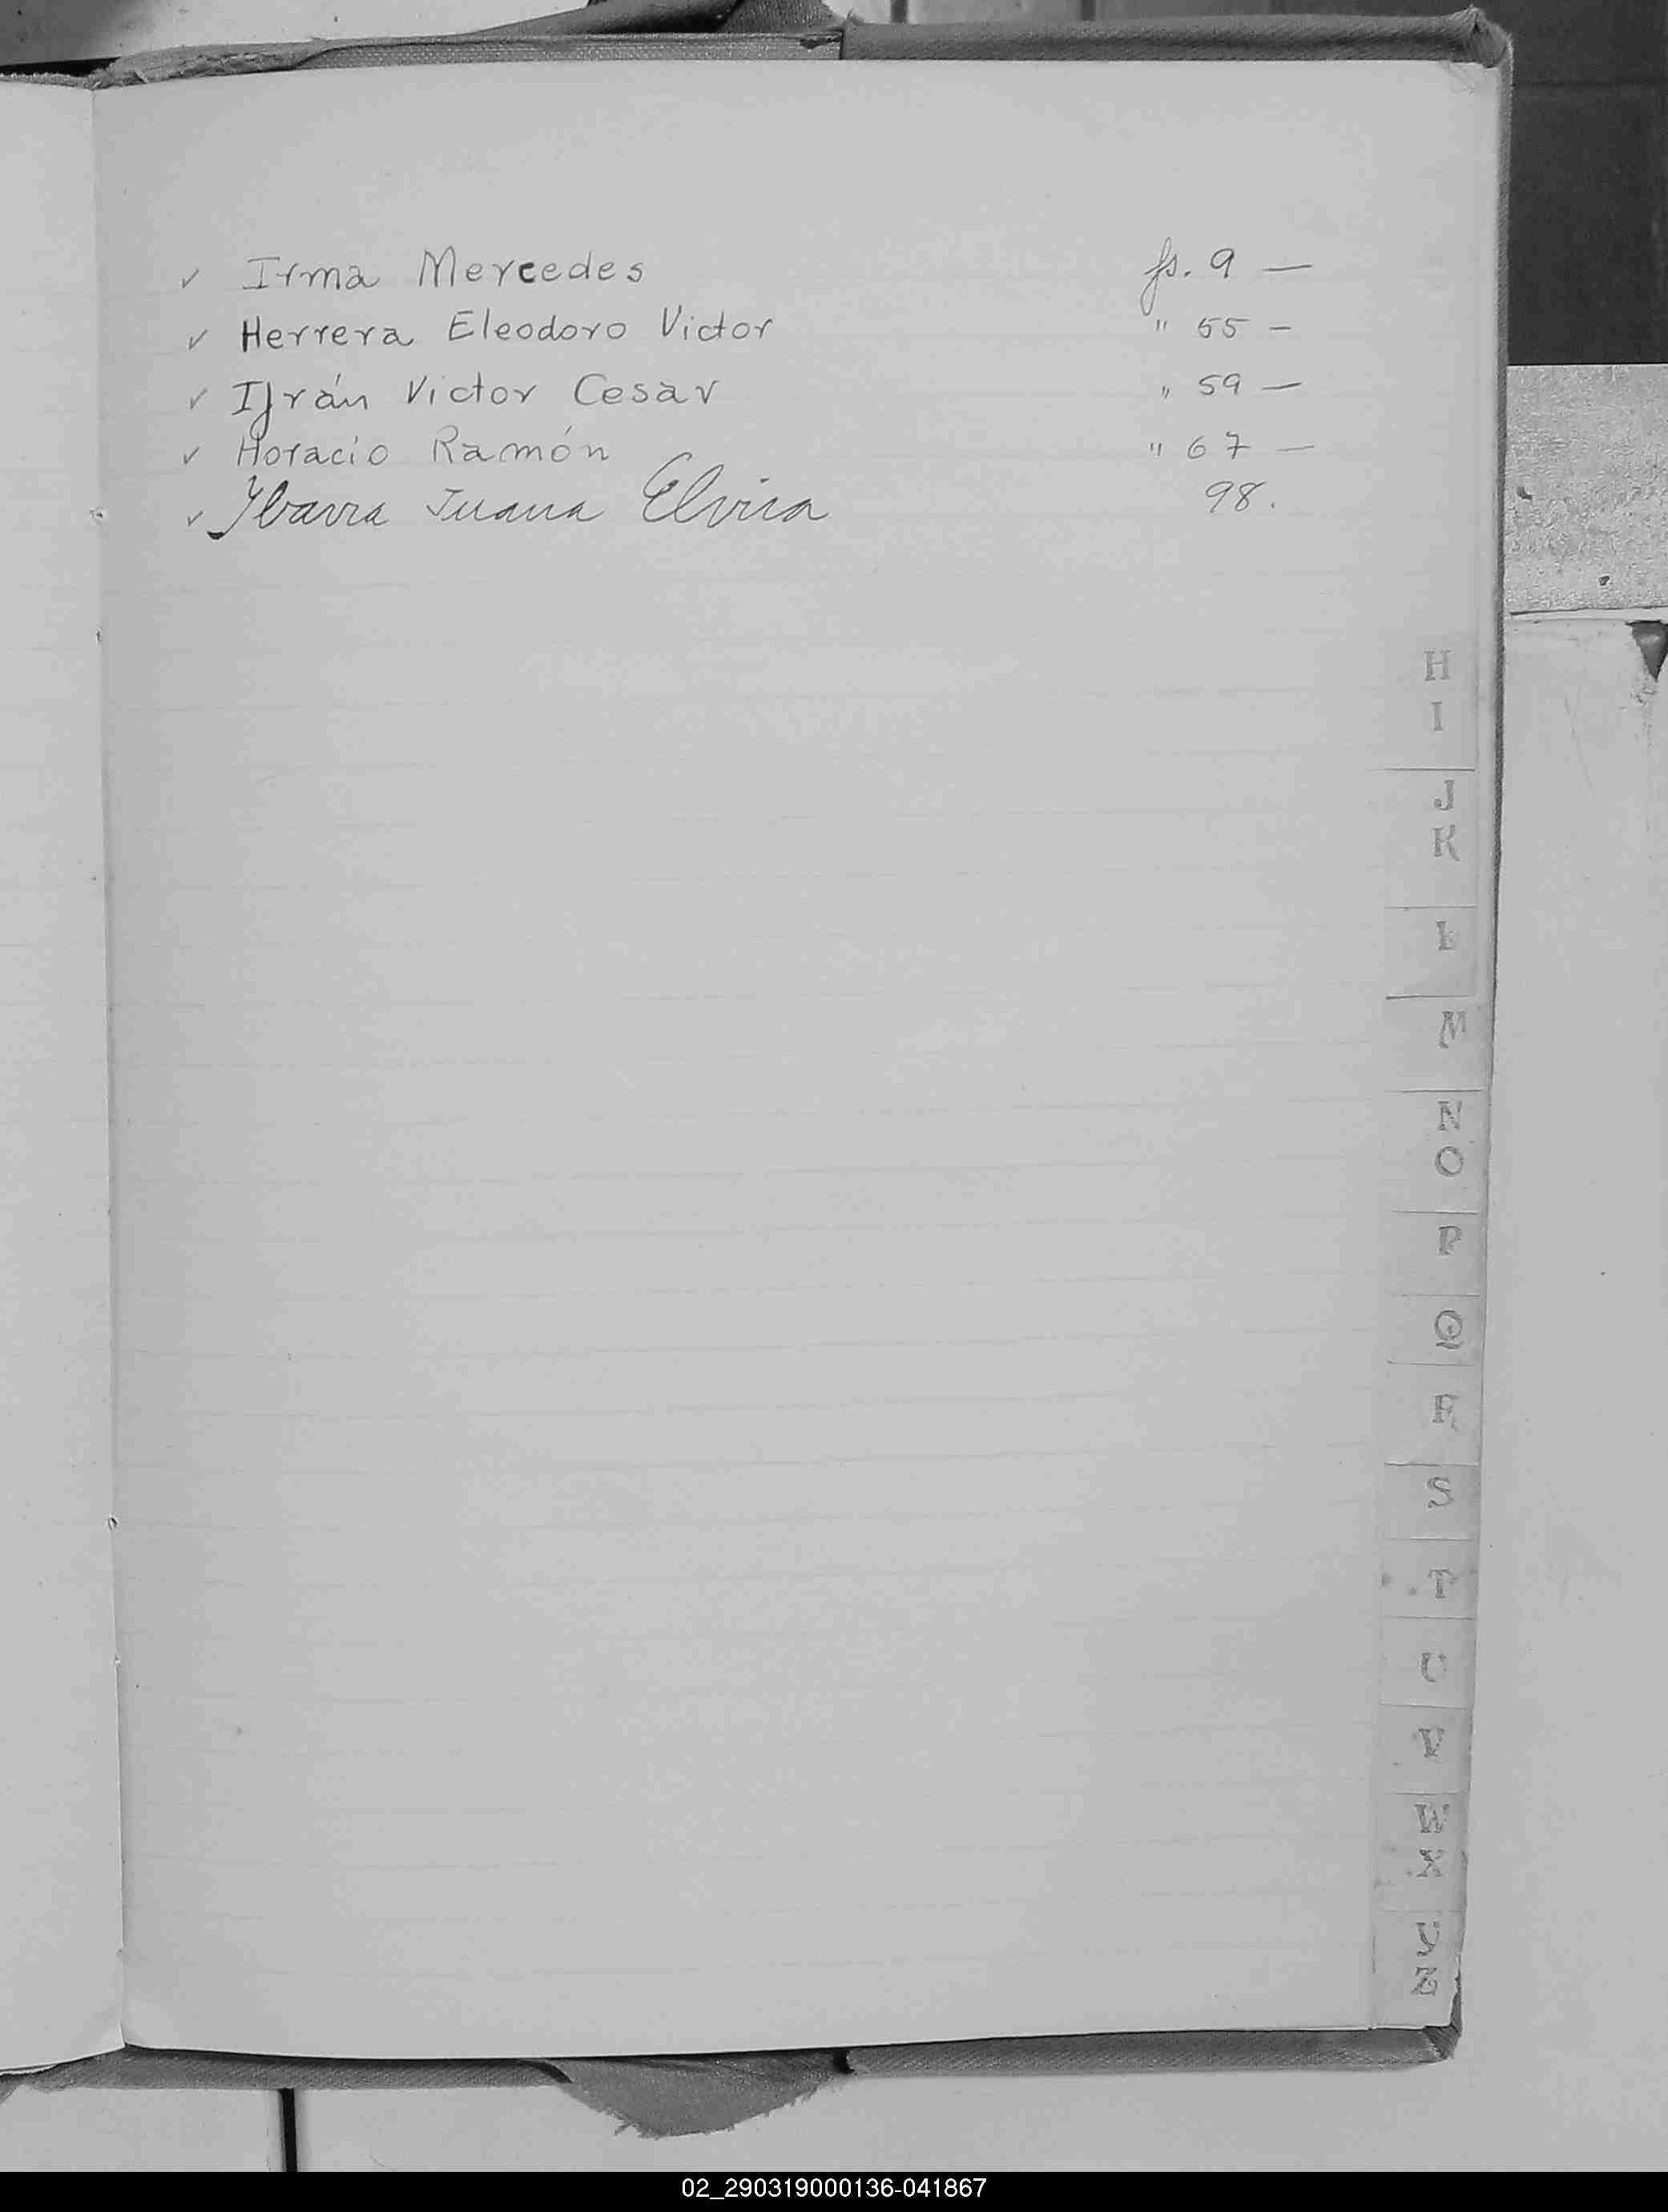 ✓ Irma Mercedes fs. 9 —
✓ Herrera Eleodoro Victor " 55 —
✓ Ifrán Victor Cesar " 59 —
✓ Horacio Ramón " 67 —
✓ Ybarra Juana Elvira 98.
H
I
J
K
L
M
N
O
P
Q
R
S
T
U
V
W
X
Y
Z
02_290319000136-041867